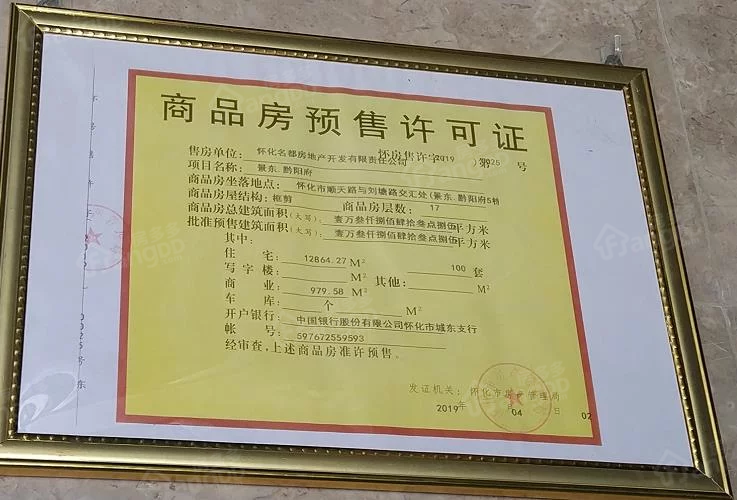 商品房预售许可证
怀房售许字(2019)第025号
售房单位:怀化名都房地产开发有限责任公司
项目名称:景东.黔阳府
商品房坐落地点:怀化市顺天路与刘塘路交汇处(景东.黔阳府5栋
商品房屋结构:框剪 商品房层数:17
商品房总建筑面积(大写):壹万叁仟捌佰肆拾叁点捌伍平方米
批准预售建筑面积(大写):壹万叁仟捌佰肆拾叁点捌伍平方米
其中:
住宅:12864.27M² 100套
写字楼:M² 其他:M²
商业:979.58M²
车库:个 M²
开户银行:中国银行股份有限公司怀化市城东支行
帐号:597672559593
经审查,上述商品房准许预售。
发证机关:怀化市房产管理局
2019年04月02日